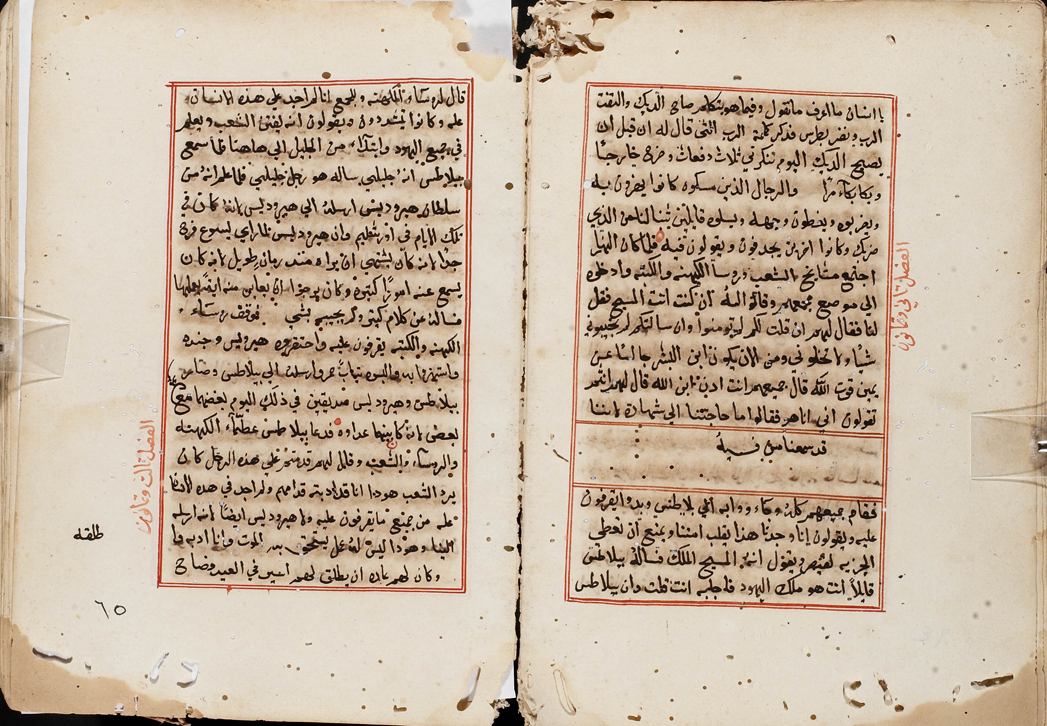 يا انسان ما اعرف ما تقول وفيما هو يتكلم صاح الديك والتفت
الرب ونضر بطرس فذكر كلمة الرب التي قال له ان قبل ان
يصيح الديك اليوم تنكرني ثلاث دفعات وخرج خارجًا
وبكا بكاء مرًا والرجال الذين مسكوه كانوا يهزون به
ويضربوه ويغطون وجهه ويسلوه قايلين تنبا لنا من الذي
ضربك وكانوا اخرين يجدفون ويقولون فيه فلما كان النهار
اجتمع مشايخ الشعب وروسا الكهنه والكتبه وادخلوه
الى موضع مجمعهم وقالوا له ان كنت انت المسيح فقل
لنا فقال لهم ان قلت لكم لم تومنوا وان سالتكم لم تجيبوني
شيًا ولا تخلوني ومن الان يكون ابن البشر جالسًا عن
يمين قوت الله قال جميعهم انت ادن ابن الله قال لهم انتم
تقولون اني انا هو فقالوا ما حاجتنا الى شهادة لاننا
قد سمعنا من فيه
فقام جميعهم كله وجاووا به الى بيلاطس وبدوا يقرفون
عليه ويقولون انا وجدنا هذا يقلب امتنا ويمنع ان نعطي
الجزيه لقيصر ويقول انه المسيح الملك فساله بيلاطس
قايلاً انت هو ملك اليهود فاجابه انت قلت وان بيلاطس
الفصل تاني وتمانون
قال لروسا الكهنه وللجمع انا لم اجد على هذا الانسان
عله وكانوا يتشددون ويقولون انه يفتن الشعب ويعلم
في جميع اليهود وابتدا من الجليل الى هاهنا فلما سمع
بيلاطس انه جليلي ساله هو رجل جليلي فلما علم انه من
سلطان هيروديس ارسله الى هيروديس لانه كان في
تلك الايام في اورشليم وان هيروديس لما راي يسوع فرح
جدا لانه كان يشتهي ان يراه منذ زمان طويل لانه كان
يسمع عنه امورًا كثيره وكان يرجوا ان يعاين منه ايه يعملها
فساله عن كلام كثير ولم يجيبه بشي فوقف روساء
الكهنه والكتبه يقرفون عليه واحتقره هيروديس وجنده
واستهزوا به والبسوه ثياب حمر وارسله الى بيلاطس وصار
بيلاطس وهيروديس صديقين في ذلك اليوم بعضهما مع
بعض لانه كان بينهما عداوه فدعا بيلاطس عظماء الكهنه
والروساء والشعب وقال لهم قدمتم على هذا الرجل كان
يرد الشعب هودا انا قد اديته قدامكم ولم اجد في هذا الانسان
عله من جميع ما يقرفون عليه ولا هيروديس ايضًا لانه ارسله
الينا وهودا ليس له عمل يستحق به الموت وانا ادبه و
وكان لهم عاده ان يطلق لهم اسير في العيد وصاح
الفصل تالت وتمانون
طلقه
٦٥